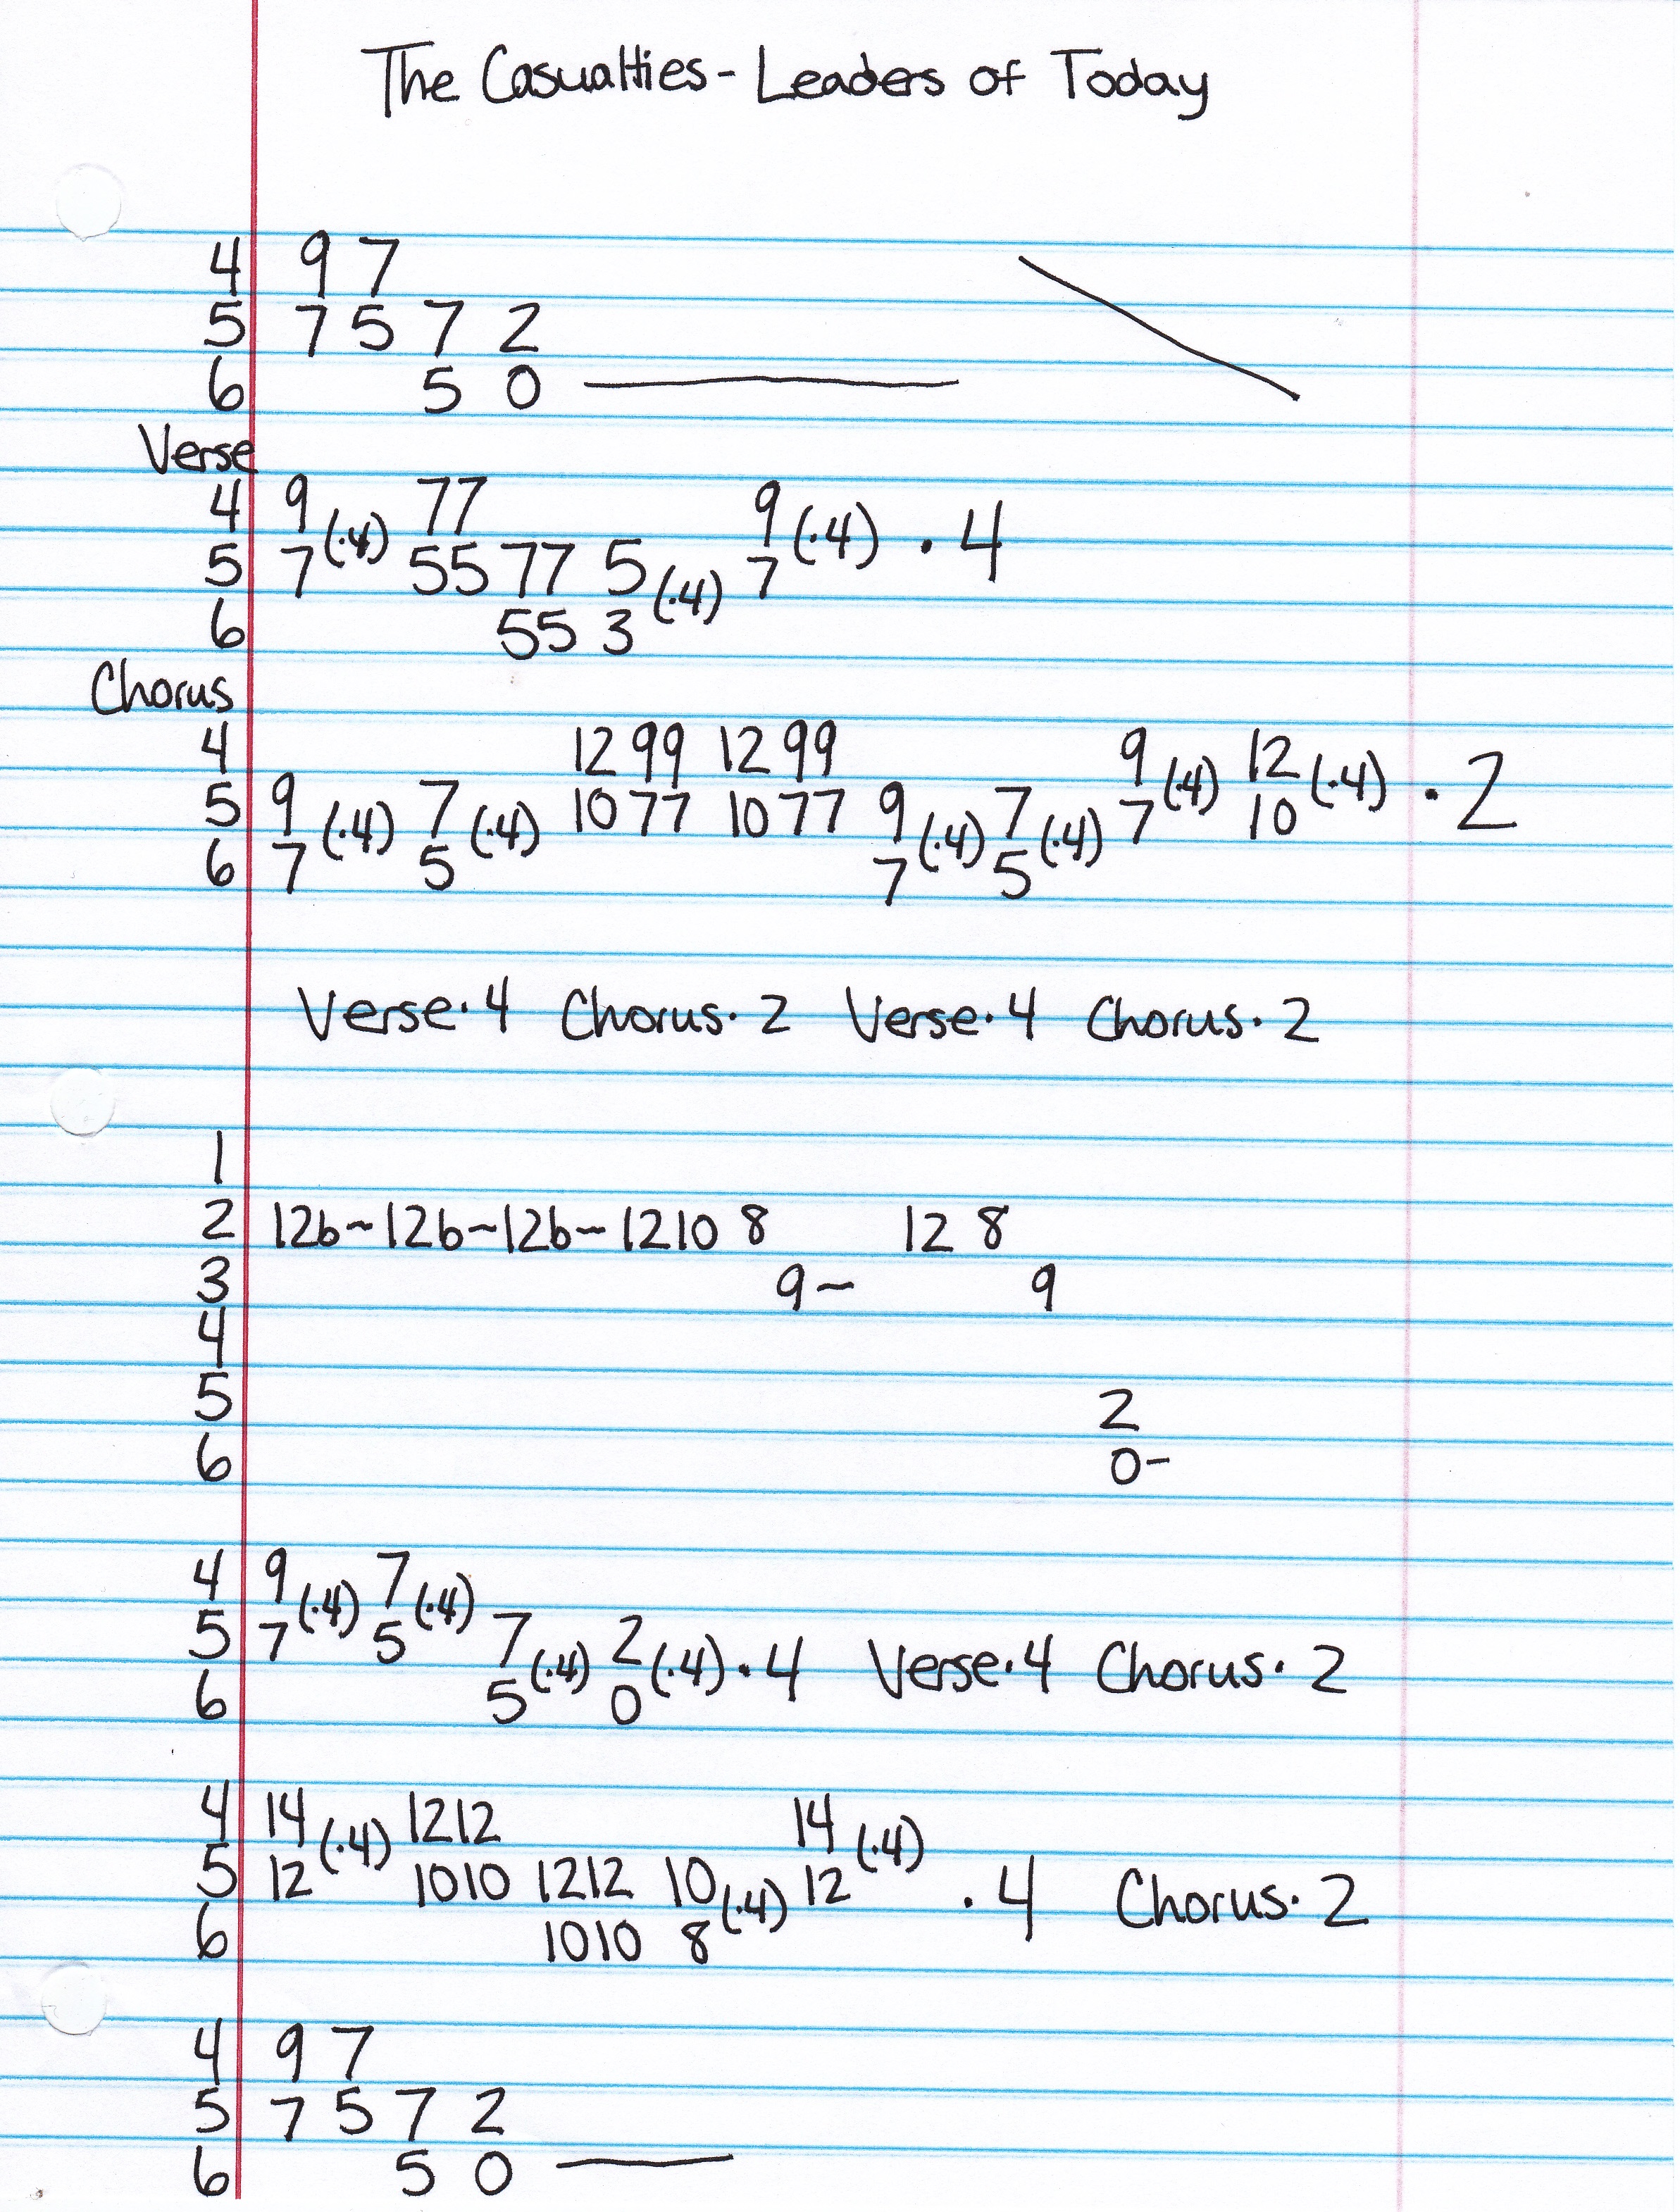 The Casualties - Leaders of Today
4 9 7
5 7 5 7 2
6 5 0
Verse
4 9 (·4) 77 9 (·4) · 4
5 7 55 77 5 (·4) 7
6 55 3
Chorus
4 12 99 12 99 9 (·4) 12 (·4) · 2
5 9 (·4) 7 (·4) 10 77 10 77 9 (·4) 7 (·4) 7 10
6 7 5 7 5
Verse · 4 Chorus · 2 Verse · 4 Chorus · 2
1
2 12b~12b~12b~1210 8 12 8
3 9~ 9
4
5 2
6 0-
4 9 (·4) 7 (·4)
5 7 5 7 (·4) 2 (·4) · 4 Verse · 4 Chorus · 2
6 5 0
4 14 (·4) 1212 14 (·4)
5 12 1010 1212 10 (·4) 12 · 4 Chorus · 2
6 1010 8
4 9 7
5 7 5 7 2
6 5 0